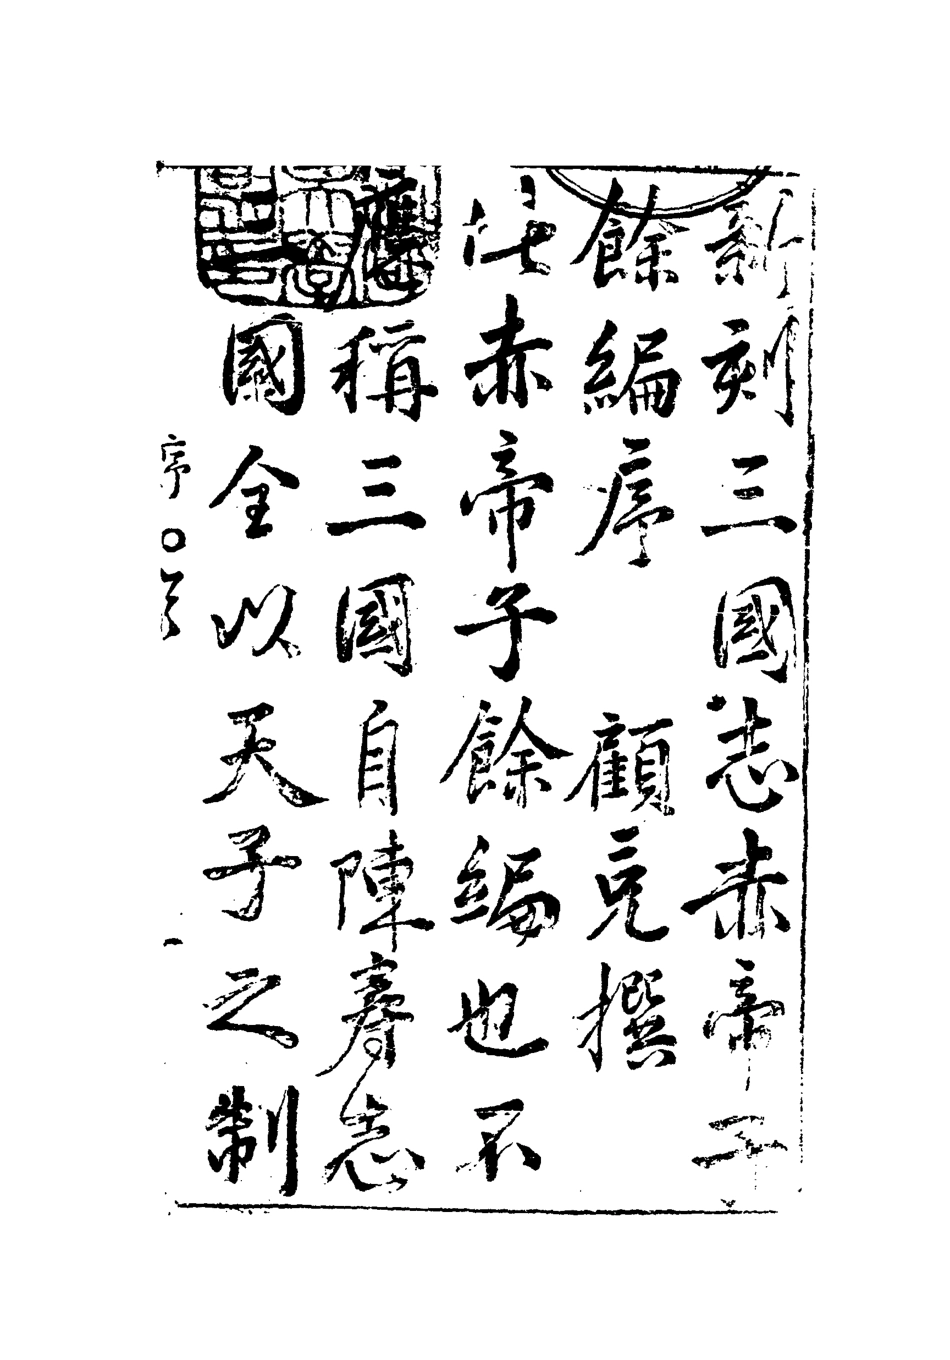 新刻三國志赤帝子
餘編序 顧充撰
此赤帝子餘編也不
應稱三國自陳壽志
國全以天子之制
序
一